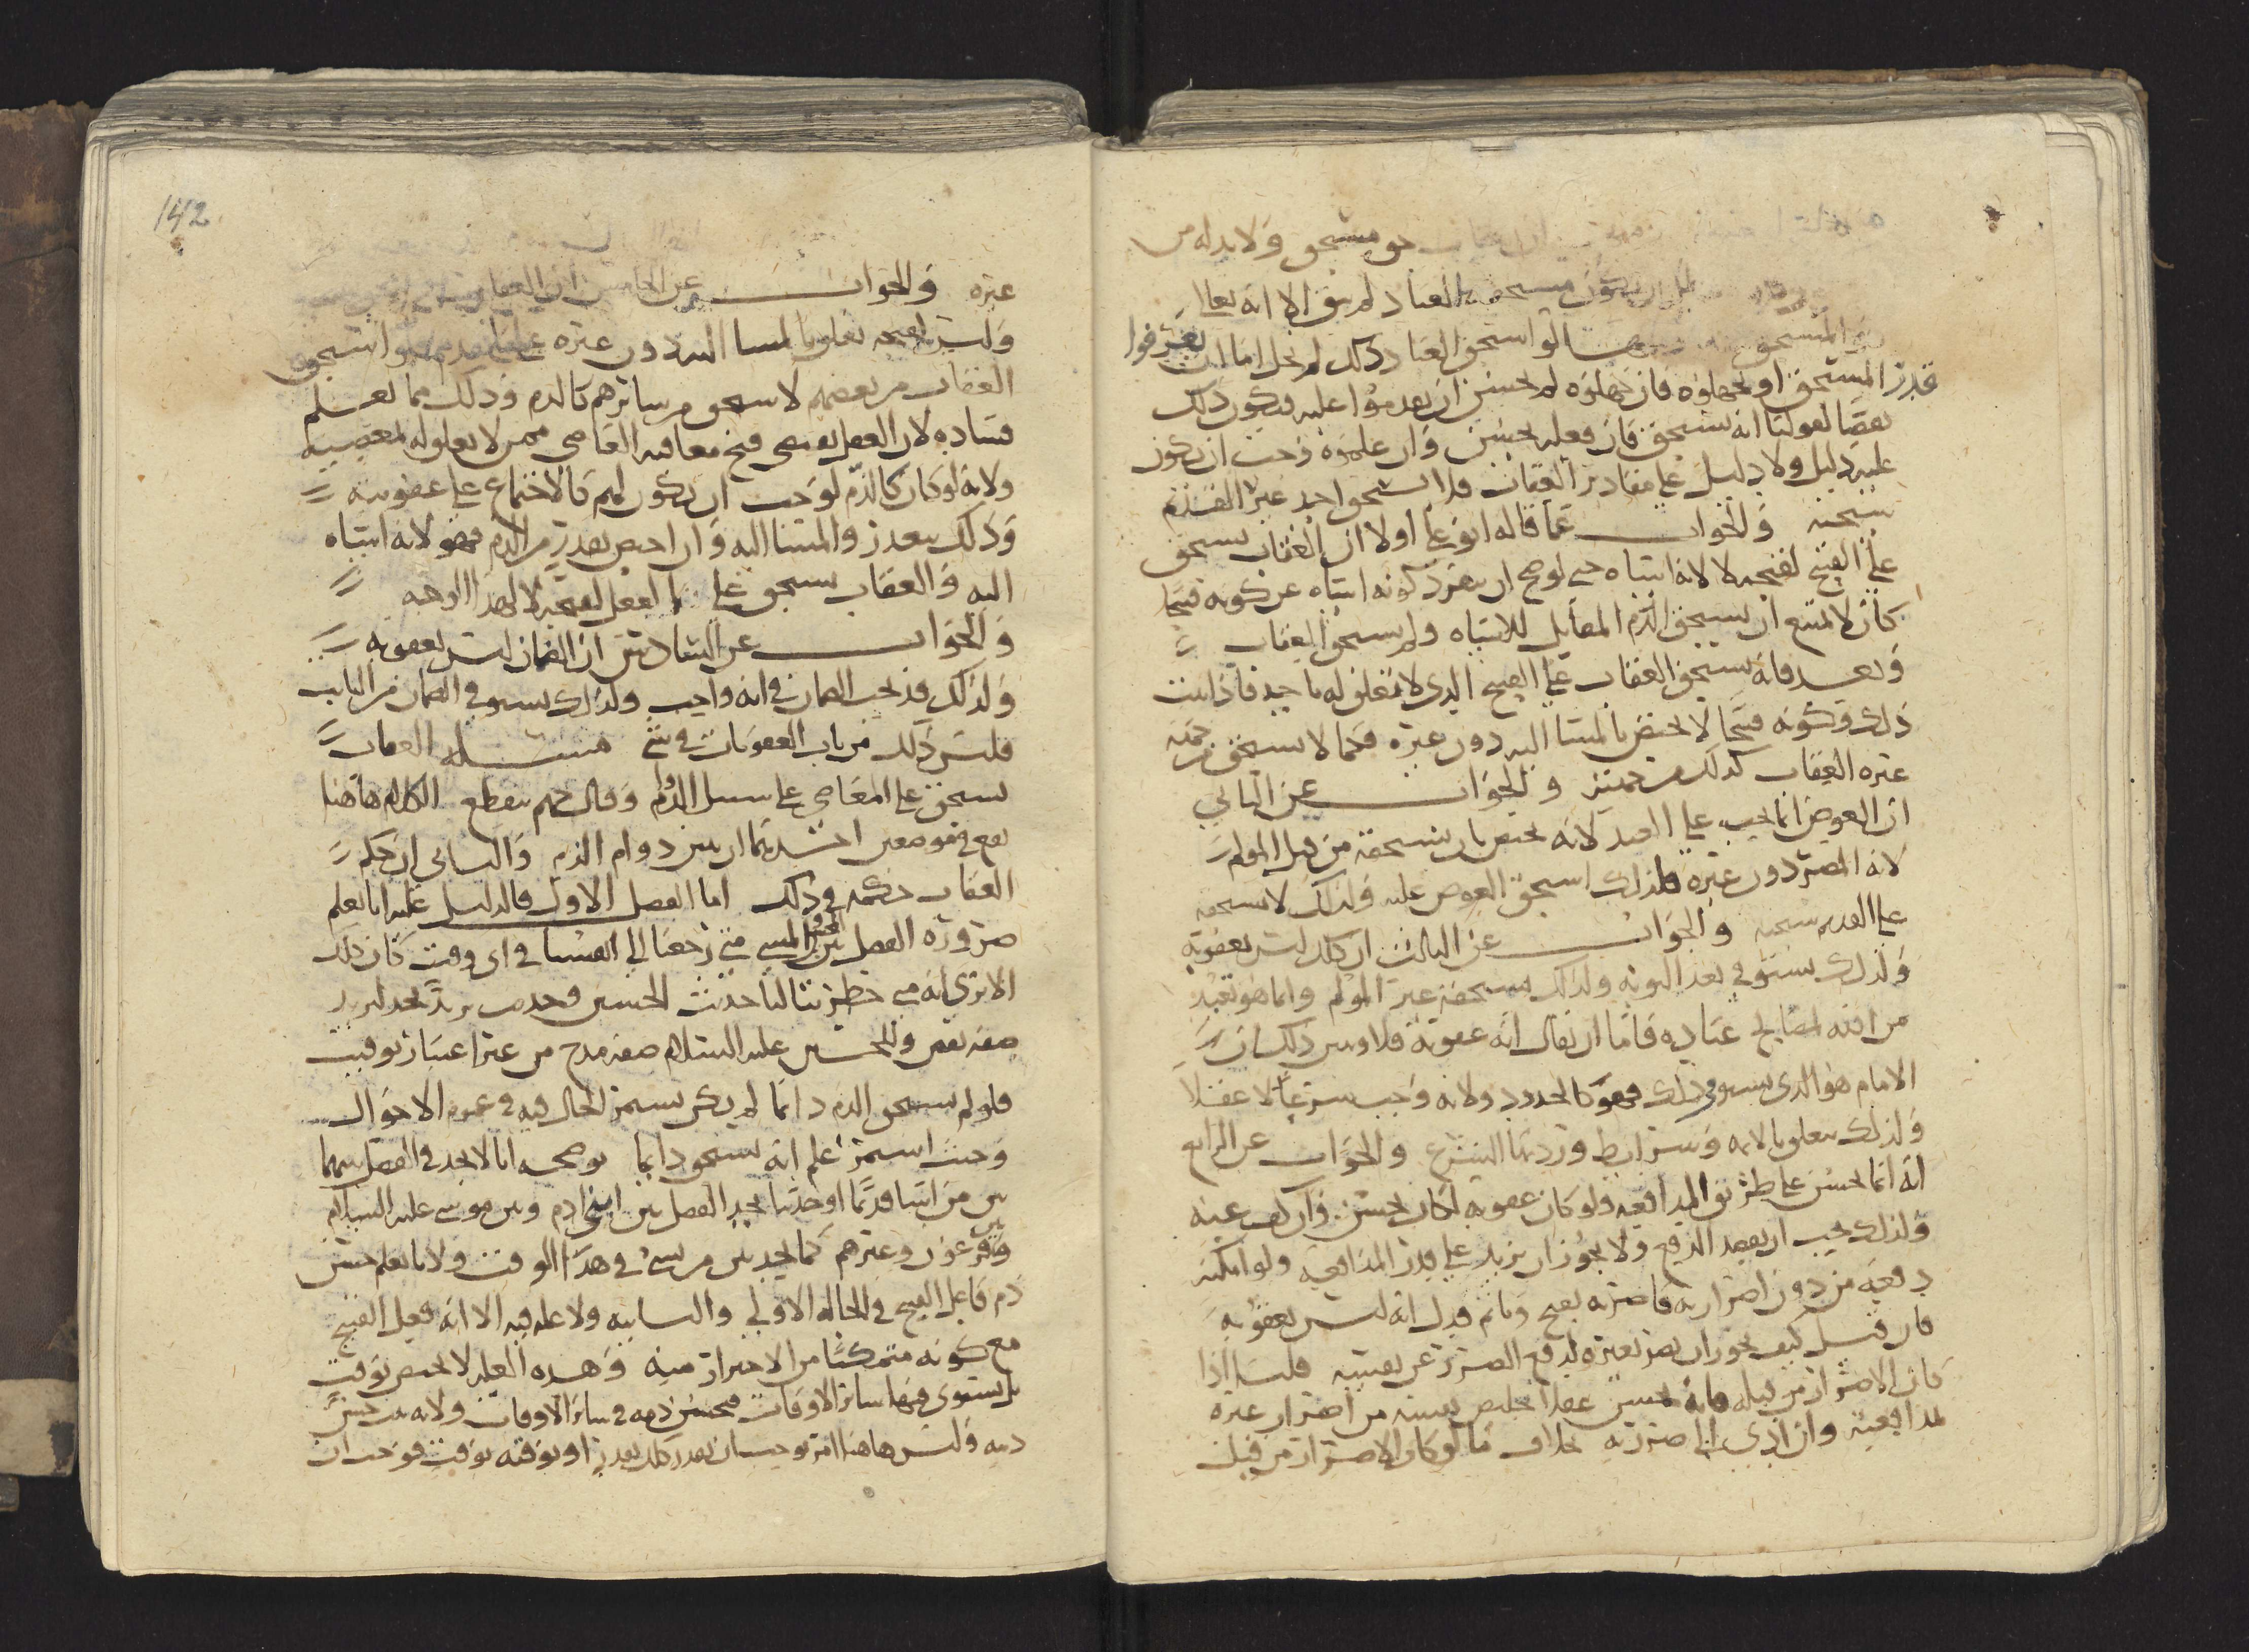 حق مستحق ولا بد له من
بل ان يكون مستحقه العباد لم يبق الا انه تعالى
المستحق لو استحق العباد ذلك لم يخل اما ان يعرفوا
قدر المستحق او يجهلوه فان جهلوه لم يحسن ان يقدموا عليه فيكون ذلك
نقضا لقولنا انه يستحق فان فعله يحسن وان علموه وجب ان يكون
عليه دليل ولا دليل على مقادير العقاب فلا يستحق احد غير القديم
سبحنه والجواب عما قاله ابو علي اولا ان العقاب يستحق
على القبيح لقبحه لا لانه اساه حتى لو صح ان ينفرد كونه اساه عن كونه قبيحا
كان لا يمتنع ان يستحق الذم المقابل للاساه ولم يستحق العقاب
وبعد فانه يستحق العقاب على القبيح الذي لا تعلق له باحد فاذا ثبت
ذلك وكونه قبيحا لا يختص بالمسا اليه دون غيره فكما لا يستحق من جهته
غيره العقاب كذلك من جهته والجواب عن الثاني
ان العوض انما يجب على العبد لانه يختص بان يستحقه من قبل المولم
لانه المضر دون غيره فلذلك استحق العوض عليه ولذلك لا يستحقه
على القديم سبحنه والجواب عن الثالث ان ذلك ليس بعقوبه
ولذلك يستوفى بعد التوبه ولذلك يستحقه غير المولم وانما هو تعبد
من الله لمصالح عباده فاما ان يقال انه عقوبة فلا وبين ذلك ان
الامام هو الذي يستوفي ذلك فهو كالحدود ولانه واجب شرعا لا عقلا
ولذلك يتعلق بالايه وشرايط وردبها الشرع والجواب عن الرابع
انه انما يحسن على طريق المدافعه ولو كان عقوبه لكان يحسن وان كف عنه
ولذلك يجب ان يقصد الدفع ولا يجوز ان يزيد على قدر المدافعه ولو امكنه
دفعه من دون اضرار به فاضره لقبح وما تم فدل انه ليس بعقوبه
فان قيل كيف يجوز ان يضر بغيره لدفع الضرر عن نفسه قلنا اذا
كان الاضرار من قبله فانه يحسن عقلا تخليص نفسه من اضرار غيره
لمدافعته وان ادى الى ضرره بخلاف ما لو كان الاضرار من قبل
142
غيره والجواب عن الخامس ان العقاب
وليس لقبحه تعلق بالمسا اليه دون غيره على ما تقدم فلو استحق
العقاب من بعضهم لاستحق من سائرهم كالذم وذلك مما يعلم
فساده لان العقل يقتضي قبح معاقبه العاصي ممن لا تعلق له بمعصيته
ولانه لو كان كالذم لوجب ان يكون لهم كالاجتماع على عقوبته
وذلك يتعذر والمسا اليه وان اختص بقدر من الذم فهو لانه اساه
اليه والعقاب يستحق على الفعل لقبحه لا لهذا الوجه
والجواب عن السادس ان الضمان ليس بعقوبه
ولذلك قد يجب الضمان في انه واجب ولذلك يستوفى الضمان من التايب
فليس ذلك من باب العقوبات في شي مسئله العقاب
يستحق على المعاصي على سبيل الدوام وقال جهم ينقطع الكلام هاهنا
يقع في موضعين احدهما ان نبين دوام الذم والثاني ان حكم
العقاب حكمه في ذلك اما الفصل الاول فالدليل عليه انا نعلم
ضرورة الفصل بين المحسن والمسي متى رجعنا الى انفسنا في اي وقت كان ذلك
الا ترى انه متى خطر ببالنا حديث الحسين وحديث يزيد نجد ليزيد
صفه نقص وللحسين عليه السلام صفه مدح من غير اعتبار توقيت
فلو لم يستحق الذم دائما لم يكن يستمر الحال فيه في عموم الاحوال
وحيث استمر علم انه يستحق دايما يوضحه انا لا نجد في الفصل بينهما
بين من اسا قديما او حديثا نجد الفصل بين ابني ادم وبين موسى عليه السلام
وبين فرعون وغيرهم كما نجد بين من يسي في هذا الوقت ولانا نعلم حسن
ذم فاعل القبيح في الحاله الاولى والثانيه ولا عله فيه الا انه فعل القبيح
مع كونه متمكنا من الاحتراز منه وهذه العله لا تختص بوقت
بل يستوي فيها سائر الاوقات فيحسن ذمه في سائر الاوقات ولانه قد حسن
ذمه وليس هاهنا امر يوجب ان يقدر ذلك بقدر او يوقته بوقت فوجب ان